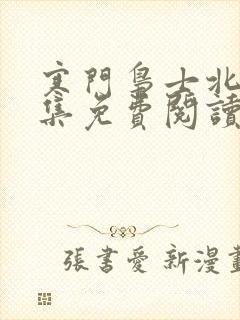 寒門梟士北
集免費閱讀
張書愛 新漫畫